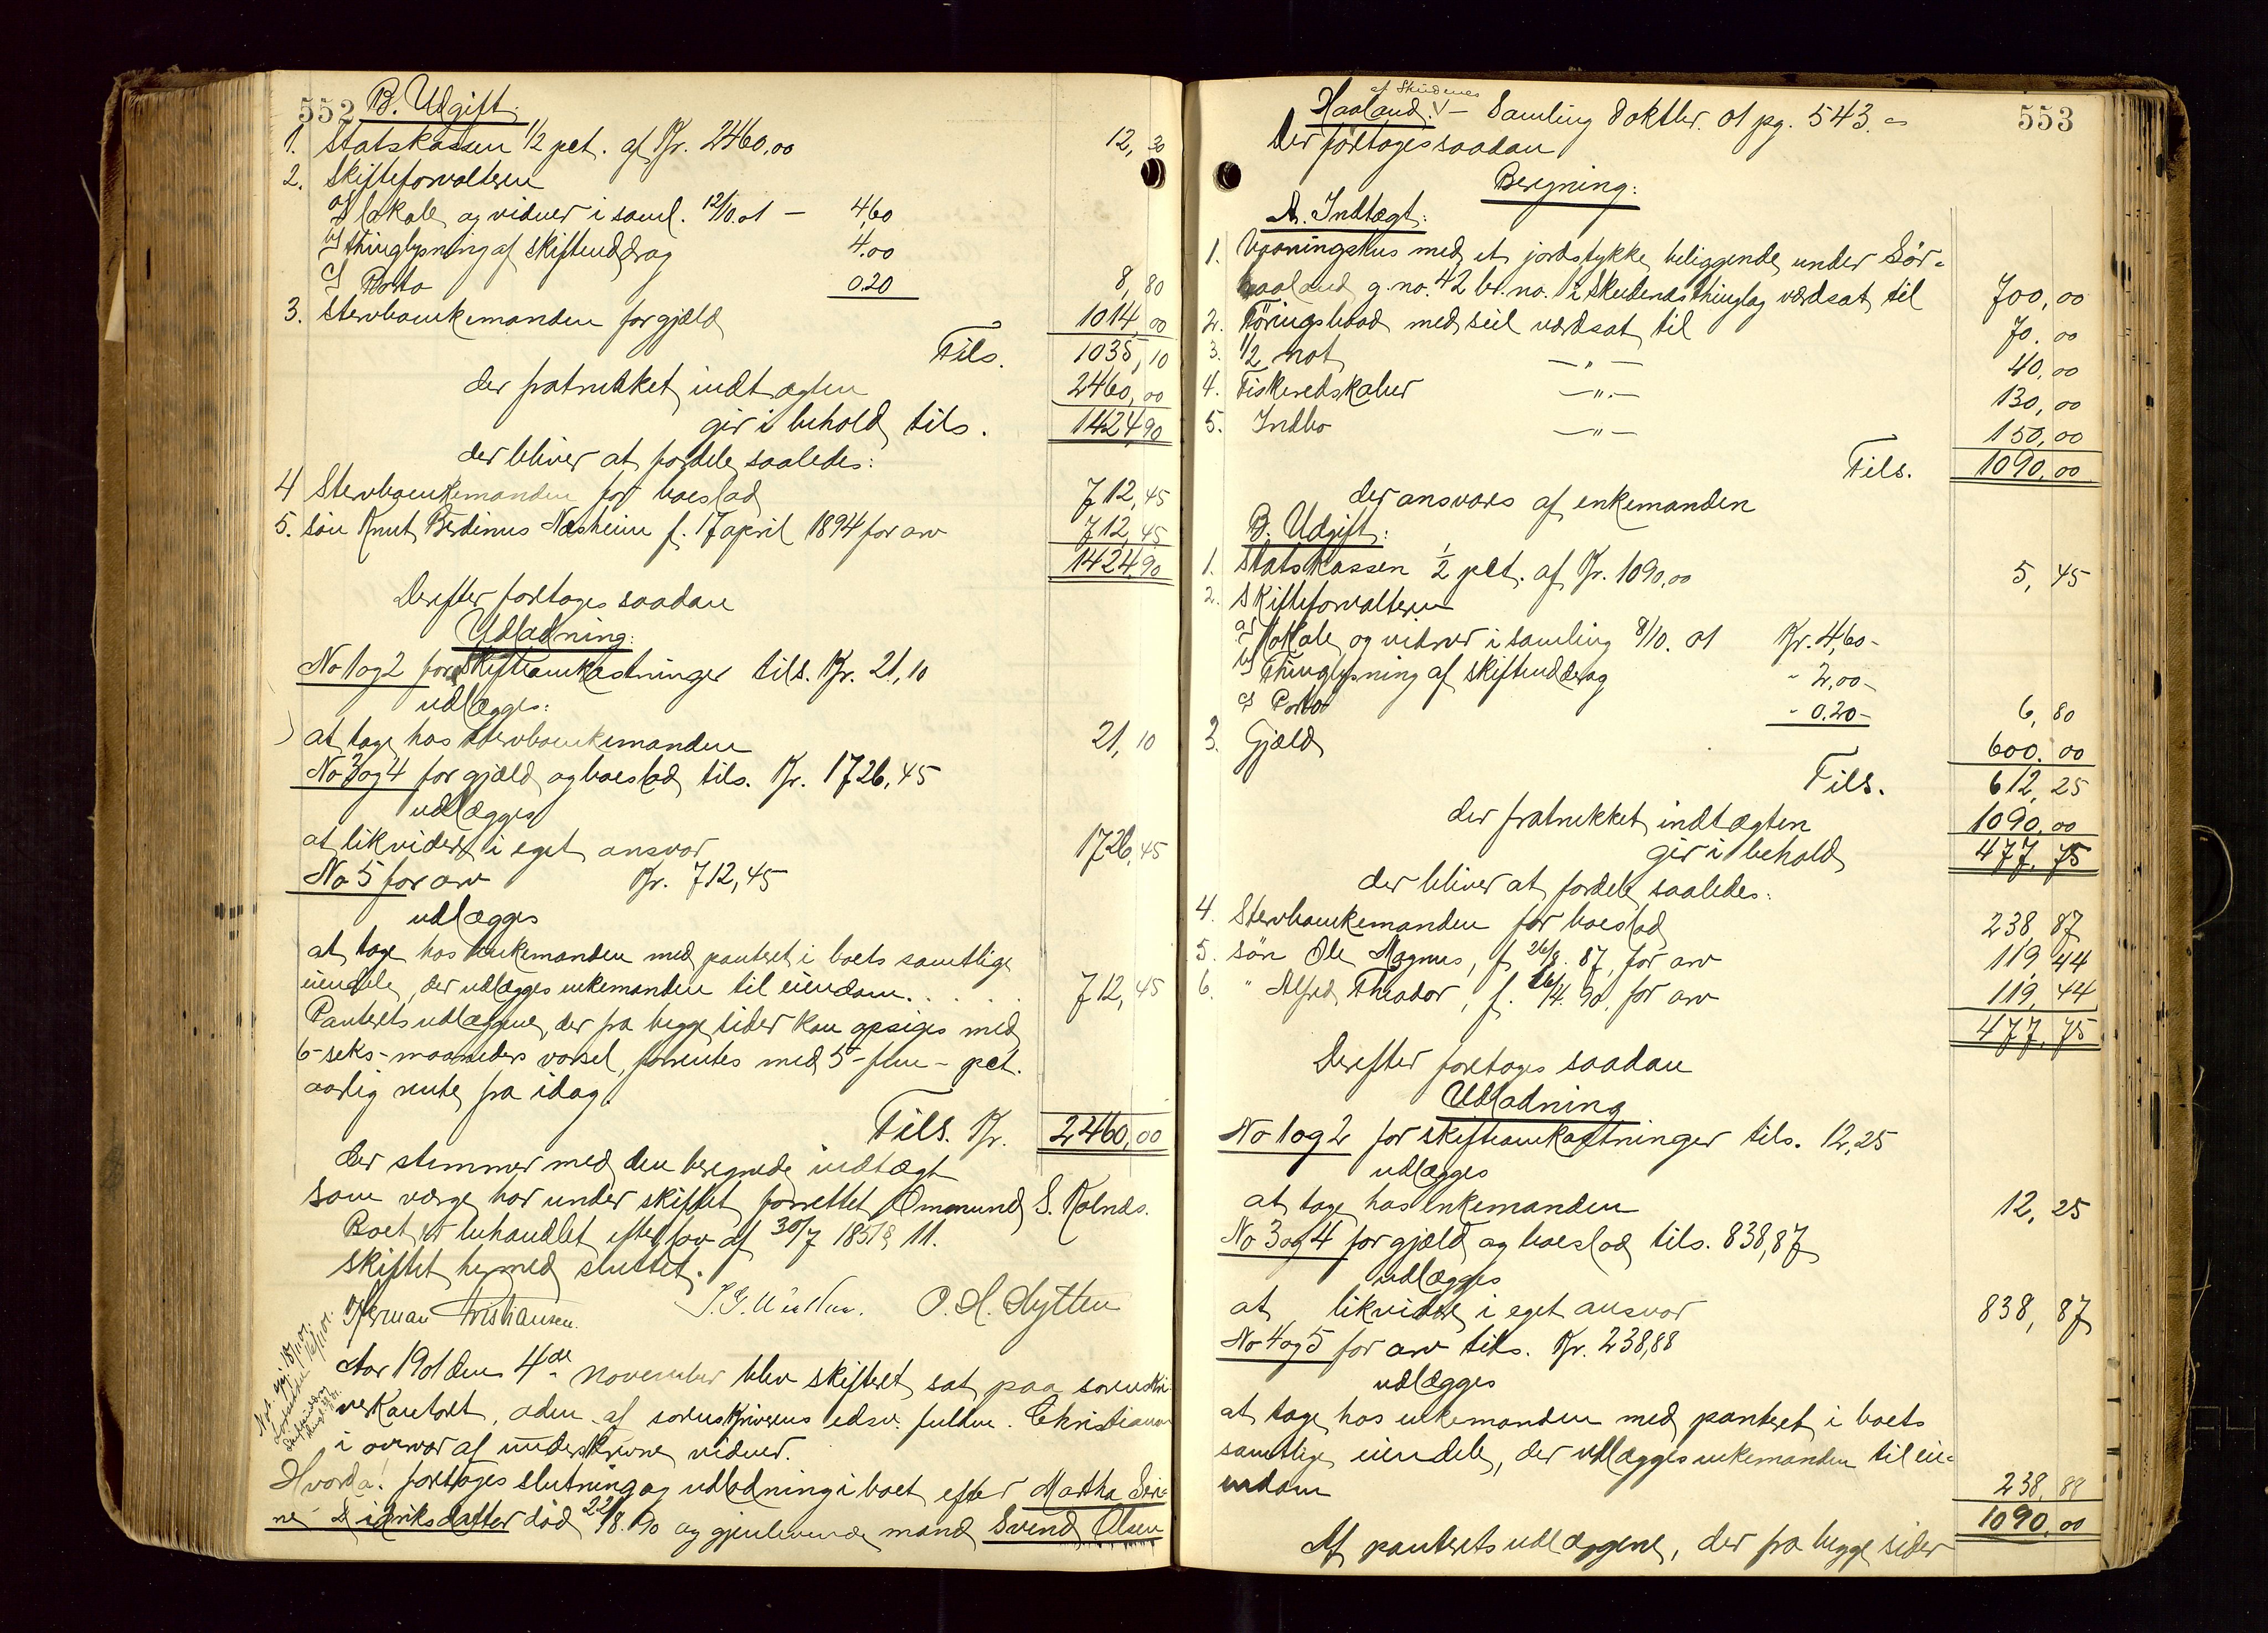 552 B. Udgift:
1. Statskassen 1/2 pct. af Kr. 2460,00 12,30
2. Skifteforvalteren
a) lokale og vidner i saml. 12/10.01 — 4,60
b) thinglysning af skifteuddrag 4.00
c) Porto 0.20 8,80
3. Stervboenkemanden for gjæld 1014,00
Tils. 1035,10
der fratrukket indtægten 2460,00
gir i behold tils. 1424,90
der bliver at fordele saaledes:
4 Stervboenkemanden for boeslod 712,45
5. søn Knut Berdinus Næsheim f. 17 april 1894 for arv 712,45
1424,90
Derefter foretages saadan
Udlodning:
No 1 og 2 for skifteomkostninger tils. Kr. 21,10
udlægges:
at tage hos stervboenkemanden 21,10
No 3 og 4 for gjæld og boeslod tils. Kr. 1726,45
udlægges
at likvidere i eget ansvar 1726,45
No 5 for arv Kr. 712,45
udlægges
at tage hos enkemanden med panteret i boets samtlige
eiendele, der udlægges enkemanden til eiendom. . . . . 712,45
Panteretsudlæggene, der fra begge sider kan opsiges med
6-seks-maaneders varsel, forrentes med 5-fem- pct.
aarlig rente fra idag.
Tils. Kr. 2460,00
der stemmer med den beregnede indtægt
Som værge har under skiftet forrettet Ommund S. Kolnes.
Boet er behandlet efter lov af 30/7 1851 § 11.
Skiftet hermed sluttet.
Herman Kristiansen. O. H. Hytten
Aar 1901 den 4de november blev skifteret sat paa sorenskri-
verkontoret, adm. af sorenskriverens edsv. fuldm. Christiansen
i overvær af underskrevne vidner.
Hvorda: foretoges slutning og udlodning i boet efter Martha Seri-
ne Didriksdatter død 22/8.90 og gjenlevende mand Svend Olsen
af Skudenes
Haaland. V — Samling 8 oktbr. 01 pg. 543. 553
Der foretoges saadan
Beregning:
A. Indtægt:
1. Vaaningshus med et jordstykke beliggende under Sör-
haaland g.no. 42 br.no. i Skudenes thinglag værdsat til 700,00
2. Föringsbaad med seil værdsat til 70.00
3. 1/2 not —"— 40,00
4. Fiskeredskaber —"— 130,00
5. Indbo —"— 150,00
Tils. 1090,00
der ansvares af enkemanden
B. Udgift:
1. Statskassen 1/2 pct. af Kr. 1090,00 5,45
2. Skifteforvalteren
a) lokale og vidner i samling 8/10. 01 Kr. 4,60-
b) Thinglysning af skifteuddrag " 2,00-
c) Porto " 0.20- 6,80
3. Gjæld 600.00
Tils. 612,25
der fratrukket indtægten 1090,00
gir i behold 477,75
der bliver at fordele saaledes:
4. Stervboenkemanden for boeslod 238,87
5. søn Ole Magnus, f. 26/8. 87, for arv 119,44
6. " Alfred Theodor, f. 16/4. 90, for arv 119,44
477,75
Derefter foretages saadan
Udlodning
No 1 og 2 for skifteomkostninger tils. 12,25
udlægges
at tage hos enkemanden 12,25
No 3 og 4 for gjæld og boeslod tils. 838,87
udlægges
at likvidere i eget ansvar 838,87
No 4 og 5 for arv tils. Kr. 238,88
udlægges
at tage hos enkemanden med panteret i boets
samtlige eiendele, der udlægges enkemanden til ei-
endom 238,88
1090,00
Af panteretsudlæggene, der fra begge sider